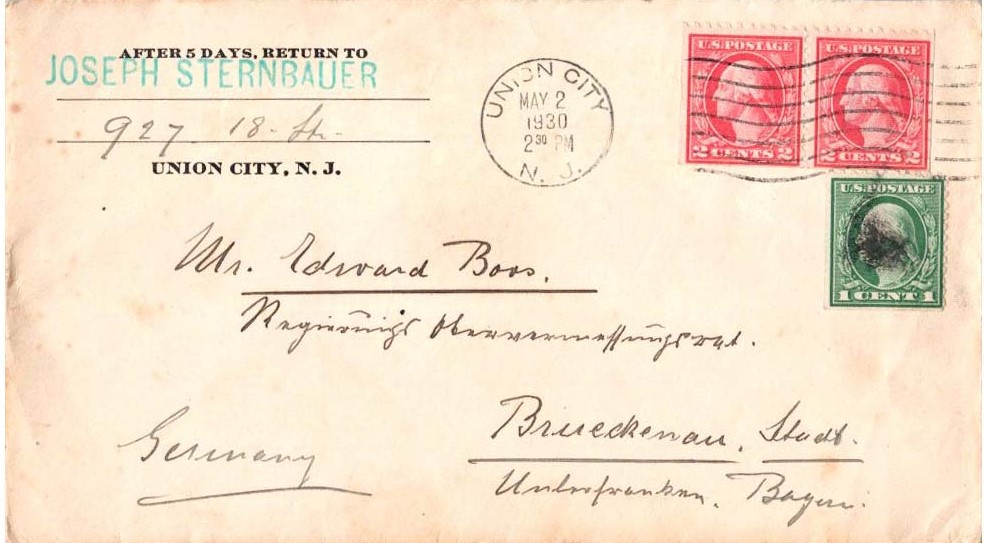 AFTER 5 DAYS, RETURN TO
JOSEPH STERNBAUER
927 18-St-
UNION CITY, N. J.
UNION CITY
MAY 2
1930
2 30 PM
N. J.
U.S. POSTAGE
2 CENTS 2
U.S. POSTAGE
2 CENTS 2
U.S. POSTAGE
1 CENT 1
Mr. Edward Boos.
Regierungs Obervermessungsrat.
Brueckenau, Stadt.
Unterfranken, Bayern.
Germany